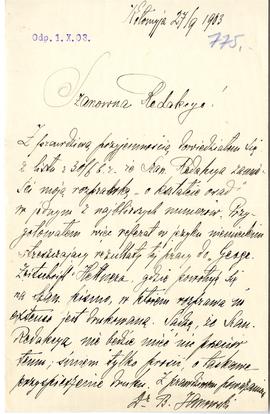 Kołomyja 27/9 1903
Odp. 1.X.03.
775.
Szanowna Redakcyo!
Z prawdziwą przyjemnością dowiedziałem się
z listu z 30/ b. r. że Szan. Redakcya zamie-
ści moją rozprawkę – o kształcie osad
w jednym z najbliższych numerów. Przy-
gotowałem więc referat w języku niemieckim
streszczający rezultaty tej pracy do Geogr.
Zeitschrift Hettnera, gdzie powołuję się
na Szan. pismo, w którem rozprawa in
extenso jest drukowana. Sądzę, że Szan.
Redakcya nie będzie mieć nic przeciw
temu; śmiem tylko prosić, o łaskawe
przyspieszenie druku. Z prawdziwem poważaniem
Dr.